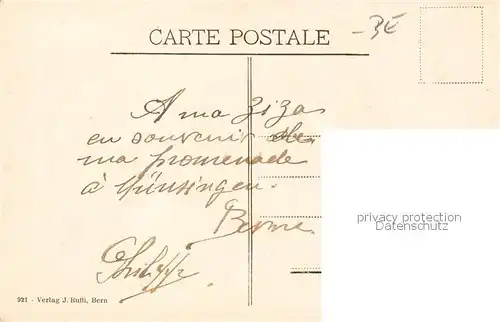 CARTE POSTALE
3E
A ma Ziza
en souvenir de
ma promenade
à Münsingen.
Berne
Philippe
privacy protection
Datenschutz
921 - Verlag J. Rufli, Bern